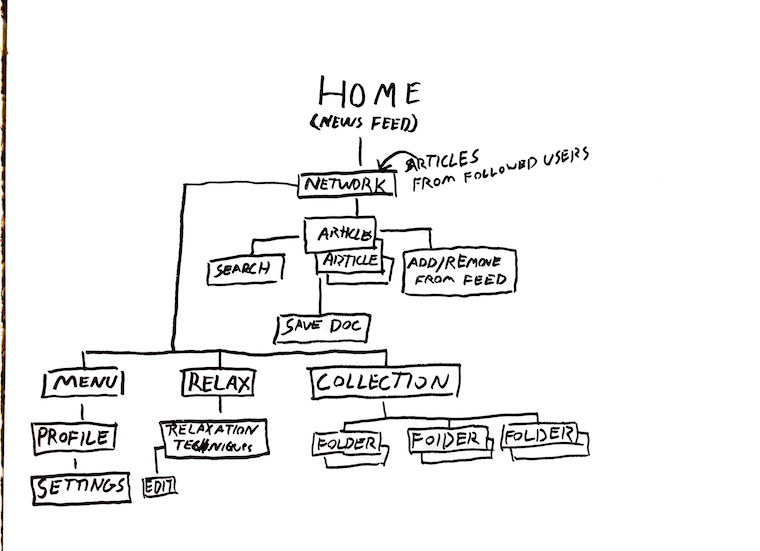 HOME
(NEWS FEED)
ARTICLES
FROM FOLLOWED USERS
NETWORK
ARTICLE
SEARCH
ARTICLE
ADD/REMOVE
FROM FEED
SAVE DOC
MENU
RELAX
COLLECTION
PROFILE
RELAXATION
TECHNIQUES
FOLDER
FOLDER
FOLDER
SETTINGS
EDIT